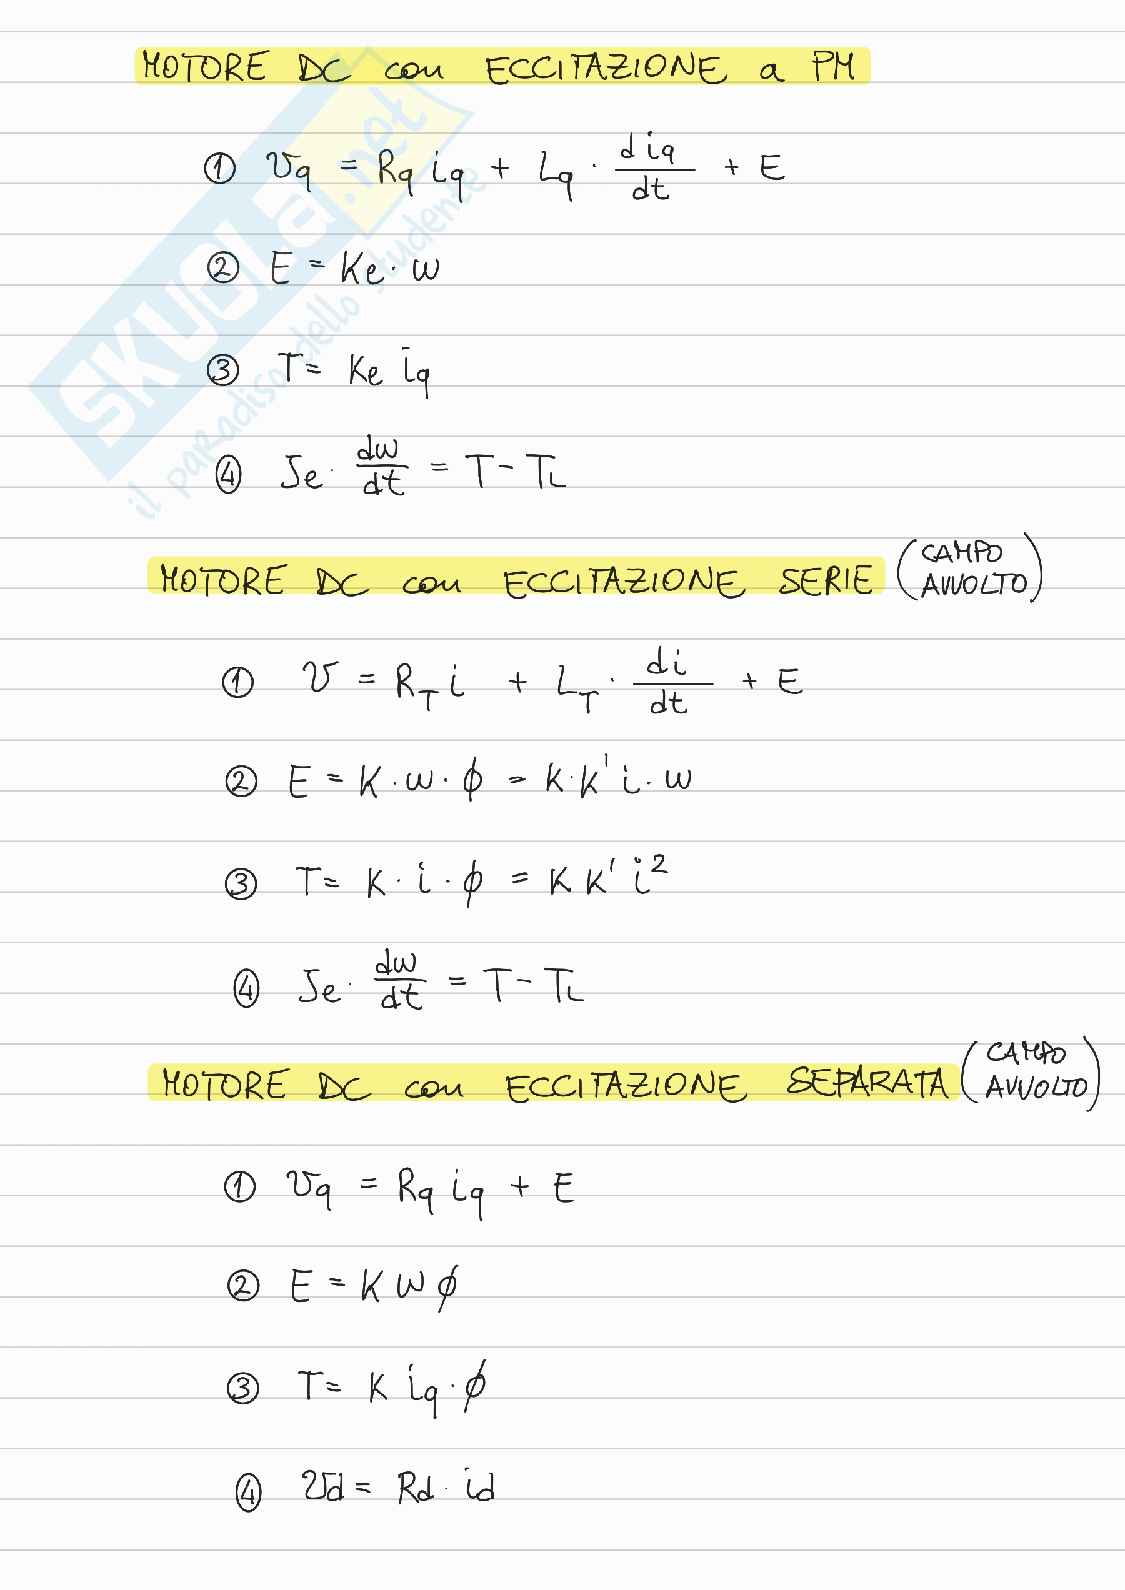 MOTORE DC con ECCITAZIONE a PM
① Vq = Rq iq + Lq · diq/dt + E
② E = Ke · w
③ T = Ke iq
④ Je · dw/dt = T - TL
MOTORE DC con ECCITAZIONE SERIE (CAMPO AVVOLTO)
① V = RT i + LT · di/dt + E
② E = K · w · ϕ = K · K' i · w
③ T = K · i · ϕ = K K' i²
④ Je · dw/dt = T - TL
MOTORE DC con ECCITAZIONE SEPARATA (CAMPO AVVOLTO)
① Vq = Rq iq + E
② E = K w ϕ
③ T = K iq · ϕ
④ Vd = Rd · id
SKUOLa.net
il paRadiso dello studente